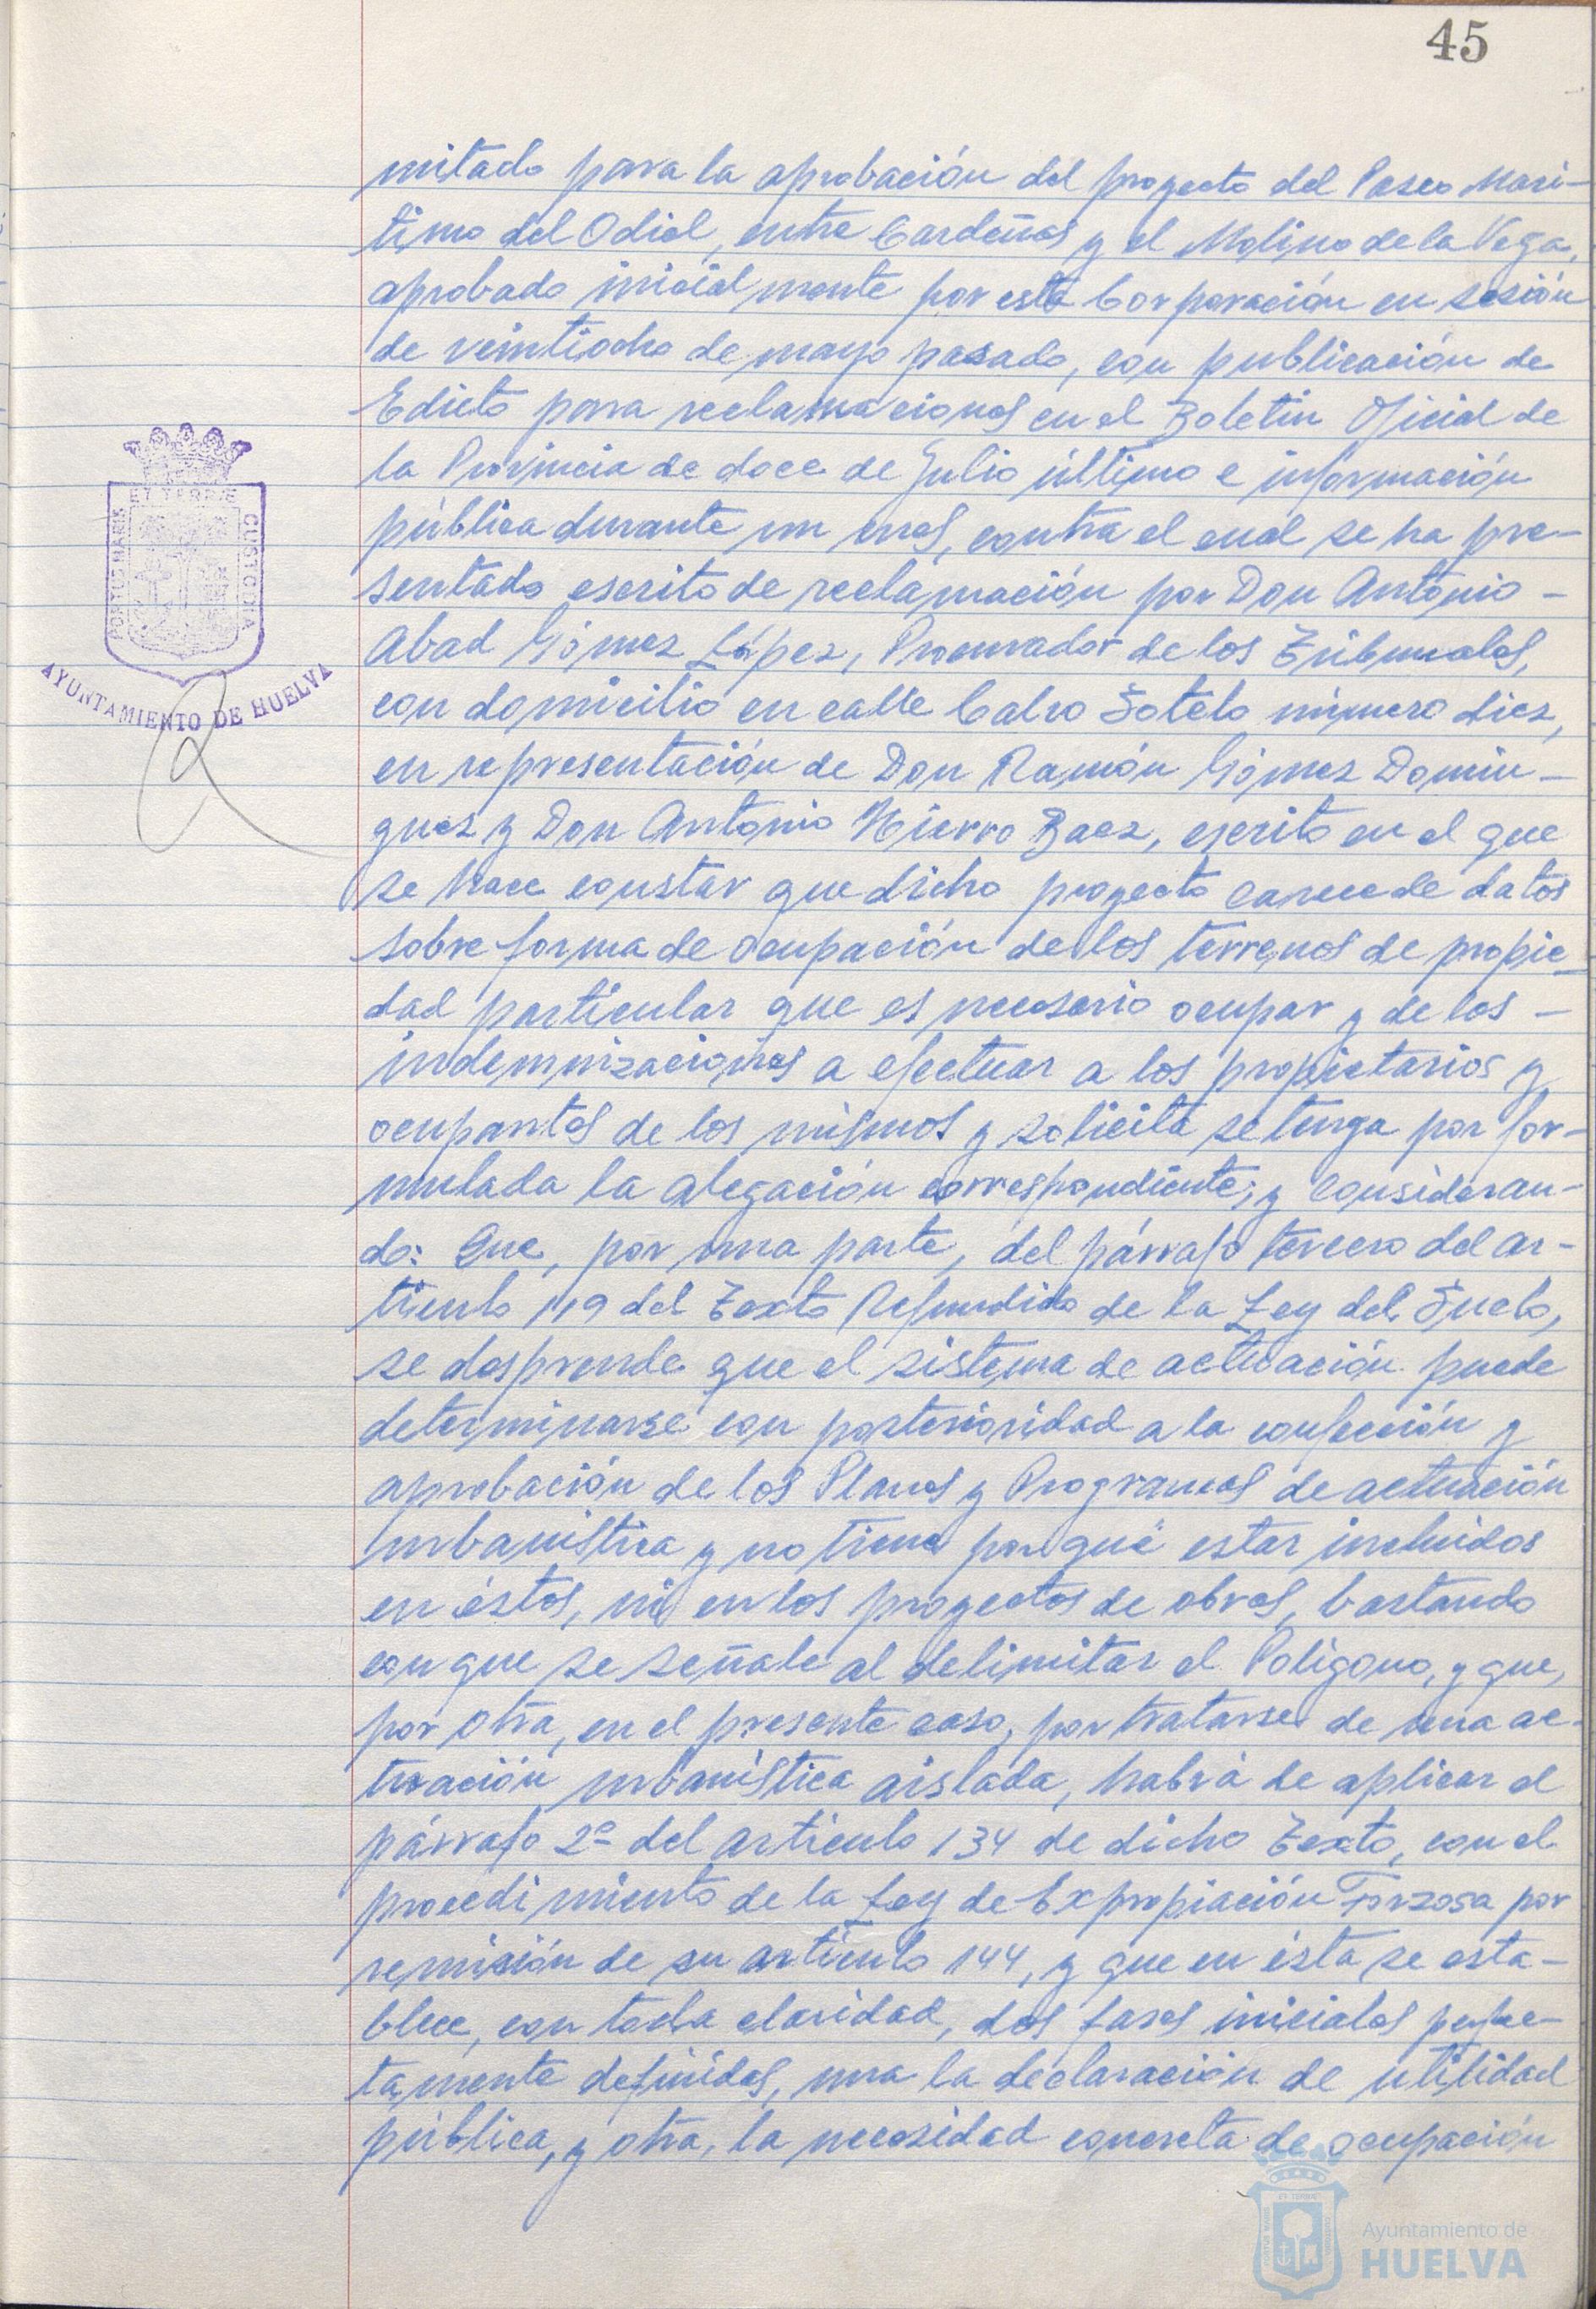 45
mitado para la aprobación del proyecto del Paseo Marí-
timo del Odiel, entre Cardeñas y el Molino de la Vega,
aprobado inicialmente por esta Corporación en sesión
de veintiocho de mayo pasado, con publicación de
Edicto para reclamaciones en el Boletin Oficial de
la Provincia de doce de Julio último e información
pública durante un mes, contra el cual se ha pre-
sentado escrito de reclamación por Don Antonio -
Abad Gómez López, Procurador de los Tribunales,
con domicilio en calle Calvo Sotelo número diez,
en representación de Don Ramón Gómez Domin-
guez y Don Antonio Hierro Baez, escrito en el que
se hace constar que dicho proyecto carece de datos
sobre forma de ocupación de los terrenos de propie-
dad particular que es necesario ocupar y de las -
indemnizaciones a efectuar a los propietarios y
ocupantes de los mismos y solicita se tenga por for-
mulada la alegación correspondiente; y Consideran-
do: Que, por una parte, del párrafo tercero del ar-
tículo 119 del Texto Refundido de la Ley del Suelo,
se desprende que el sistema de actuación puede
determinarse con posterioridad a la confección y
aprobación de los Planes y Programas de actuación
urbanística y no tiene por qué estar incluidos
en éstos, ni en los proyectos de obras, bastando
con que se señale al delimitar el Polígono, y que,
por otra, en el presente caso, por tratarse de una ac-
tuación urbanística aislada, habrá de aplicar el
párrafo 2º del artículo 134 de dicho Texto, con el
procedimiento de la Ley de Expropiación Forzosa por
remisión de su artículo 144, y que en ésta se esta-
blece, con toda claridad, dos fases iniciales perfec-
tamente definidas, una la declaración de utilidad
pública, y otra, la necesidad concreta de ocupación
PORTUS MARIS
ET TERRÆ
CUSTODIA
AYUNTAMIENTO DE HUELVA
Ayuntamiento de
HUELVA